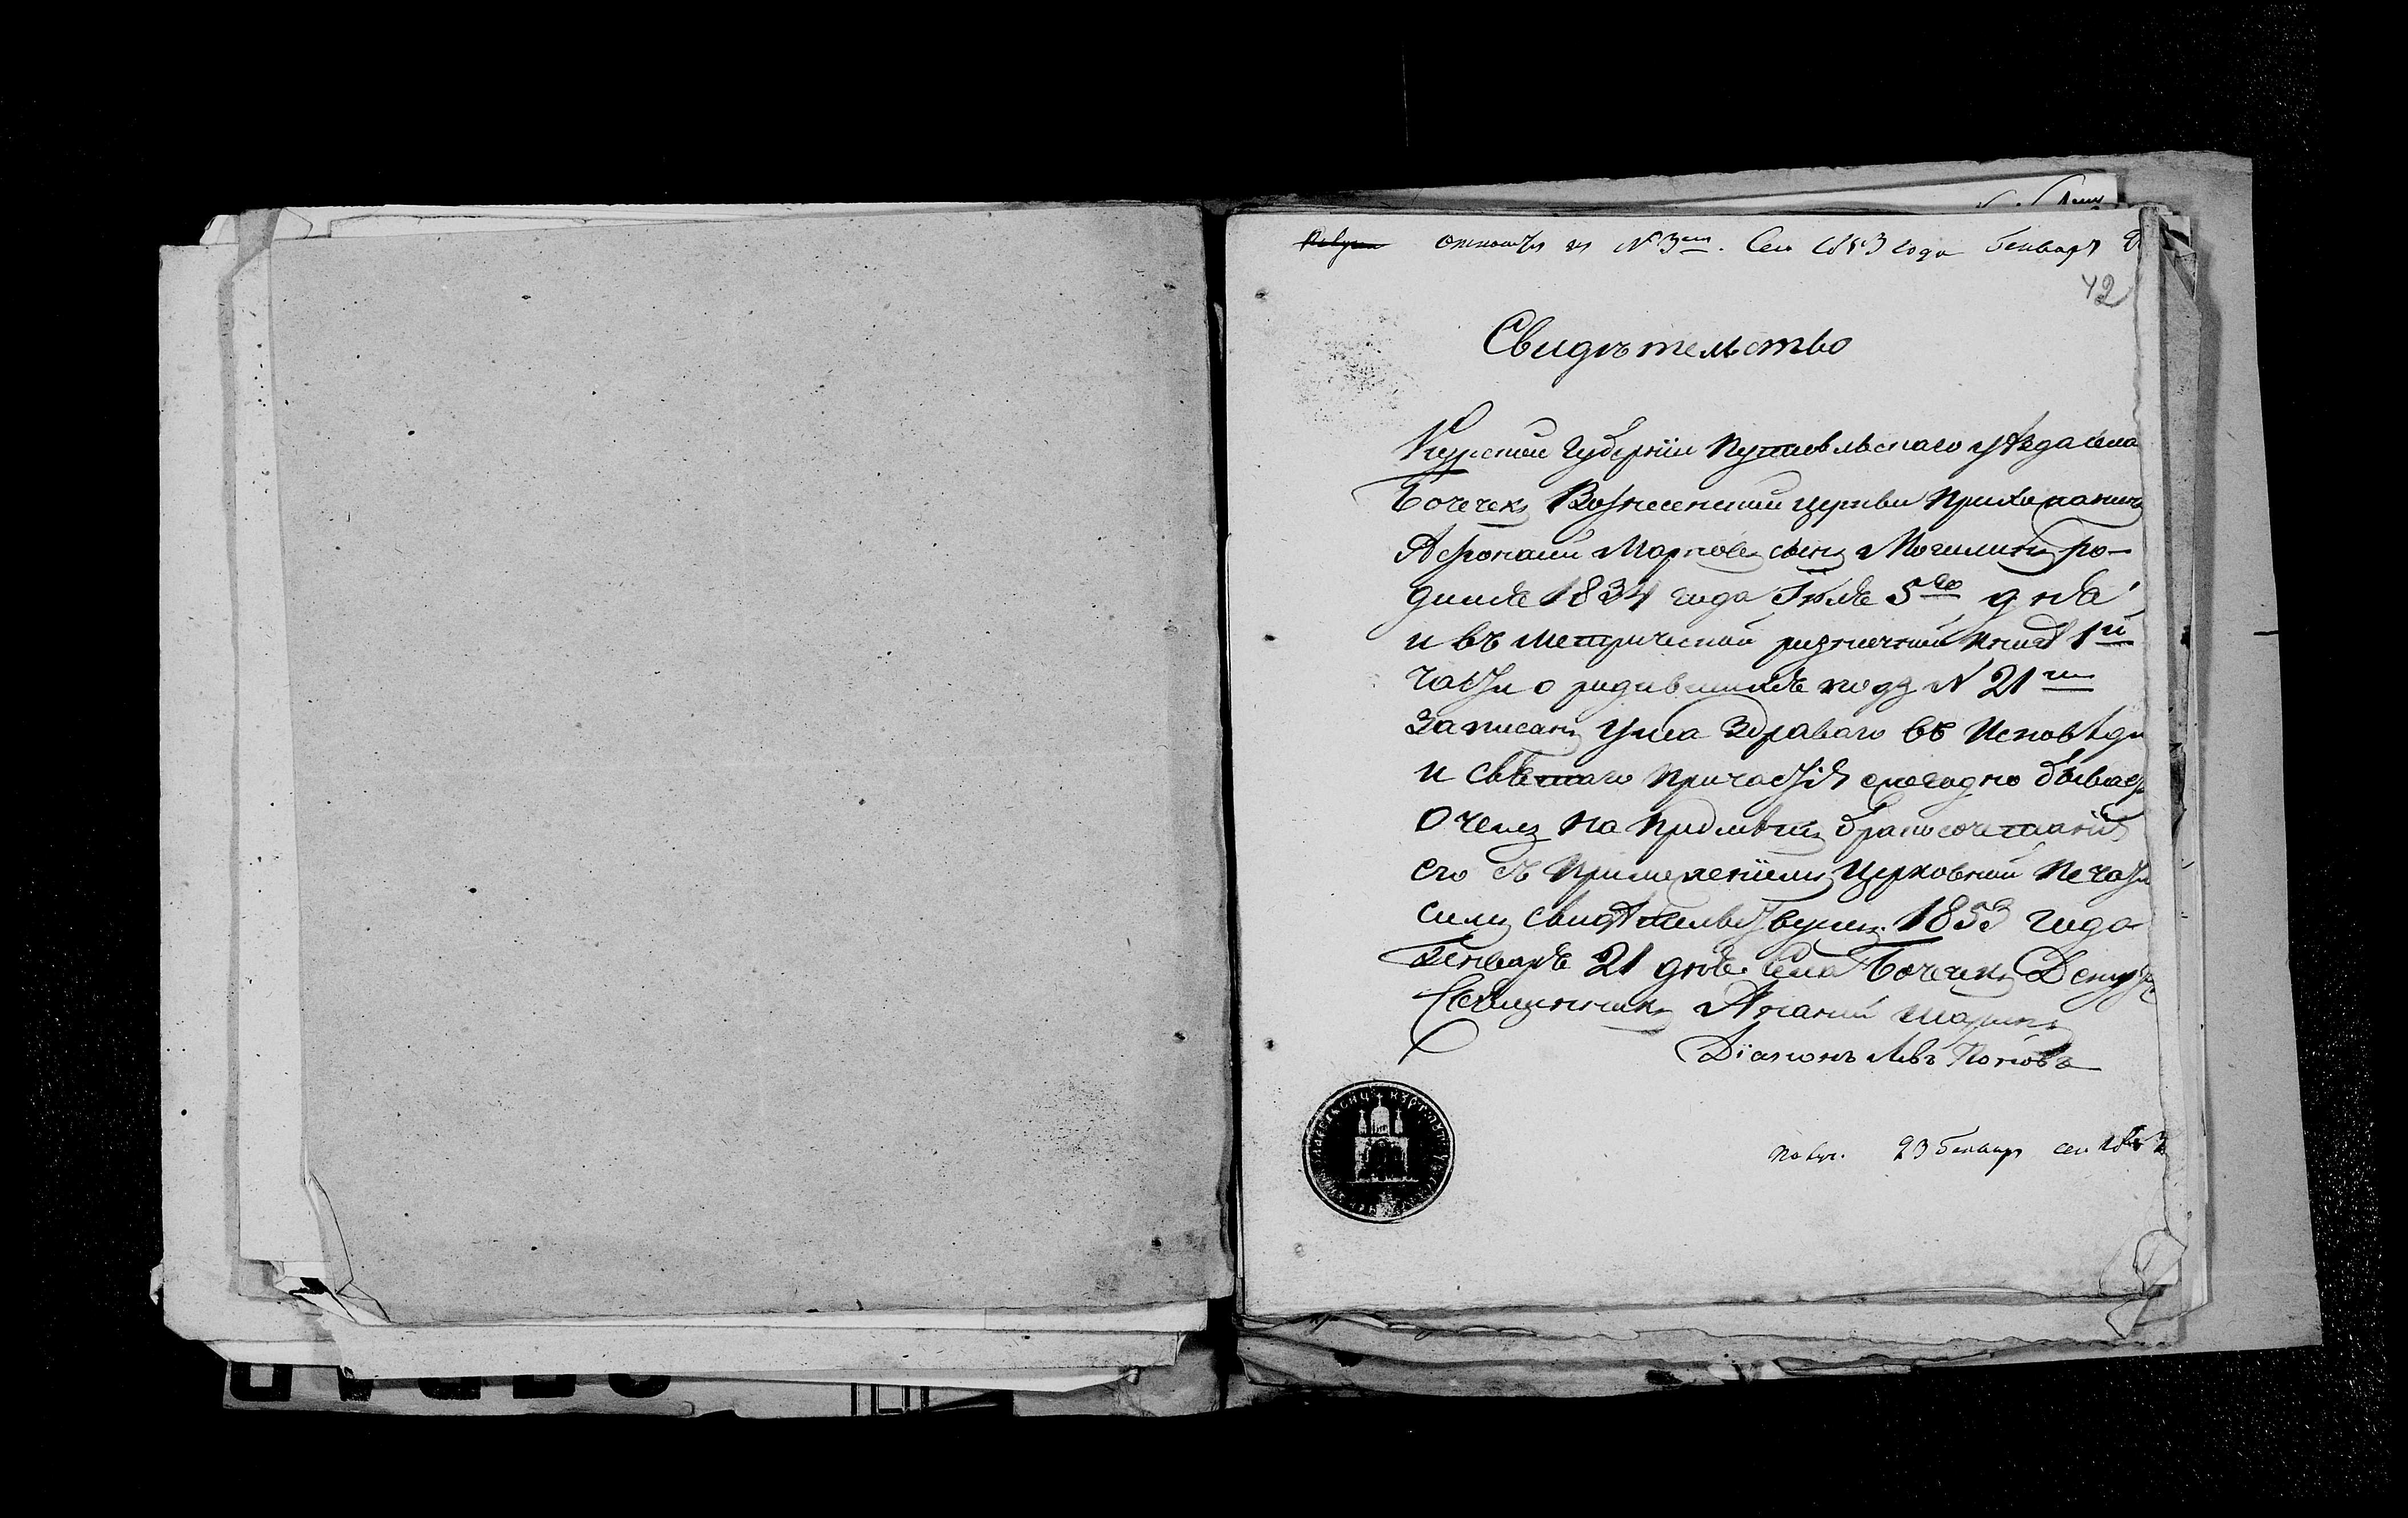 относ. къ № 3му. Сего 1853 года Генваря
42
Свидѣтельство
Курской Губерніи Путивльскаго уѣзда села
Бочечекъ Вознесенской церкви Прихожанинъ
Афонасій Марковъ сынъ Могилинъ ро-
дился 1834 года Іюля 5го дня
и въ метрической ризничной книгѣ 1й
части о родившихся подъ № 21мъ
Записанъ Ума Здраваго въ Исповѣди
и святаго Причастія ежегодно бываетъ
О чемъ на Предметъ бракосочетанія
его съ Приложеніемъ Церковной Печати
симъ свидѣтельствуемъ. 1853 года
Генваря 21 дня. Села Бочечекъ
Священникъ Ананій
Діаконъ Левъ Поповъ
Получ. 23 Генваря сего 1853